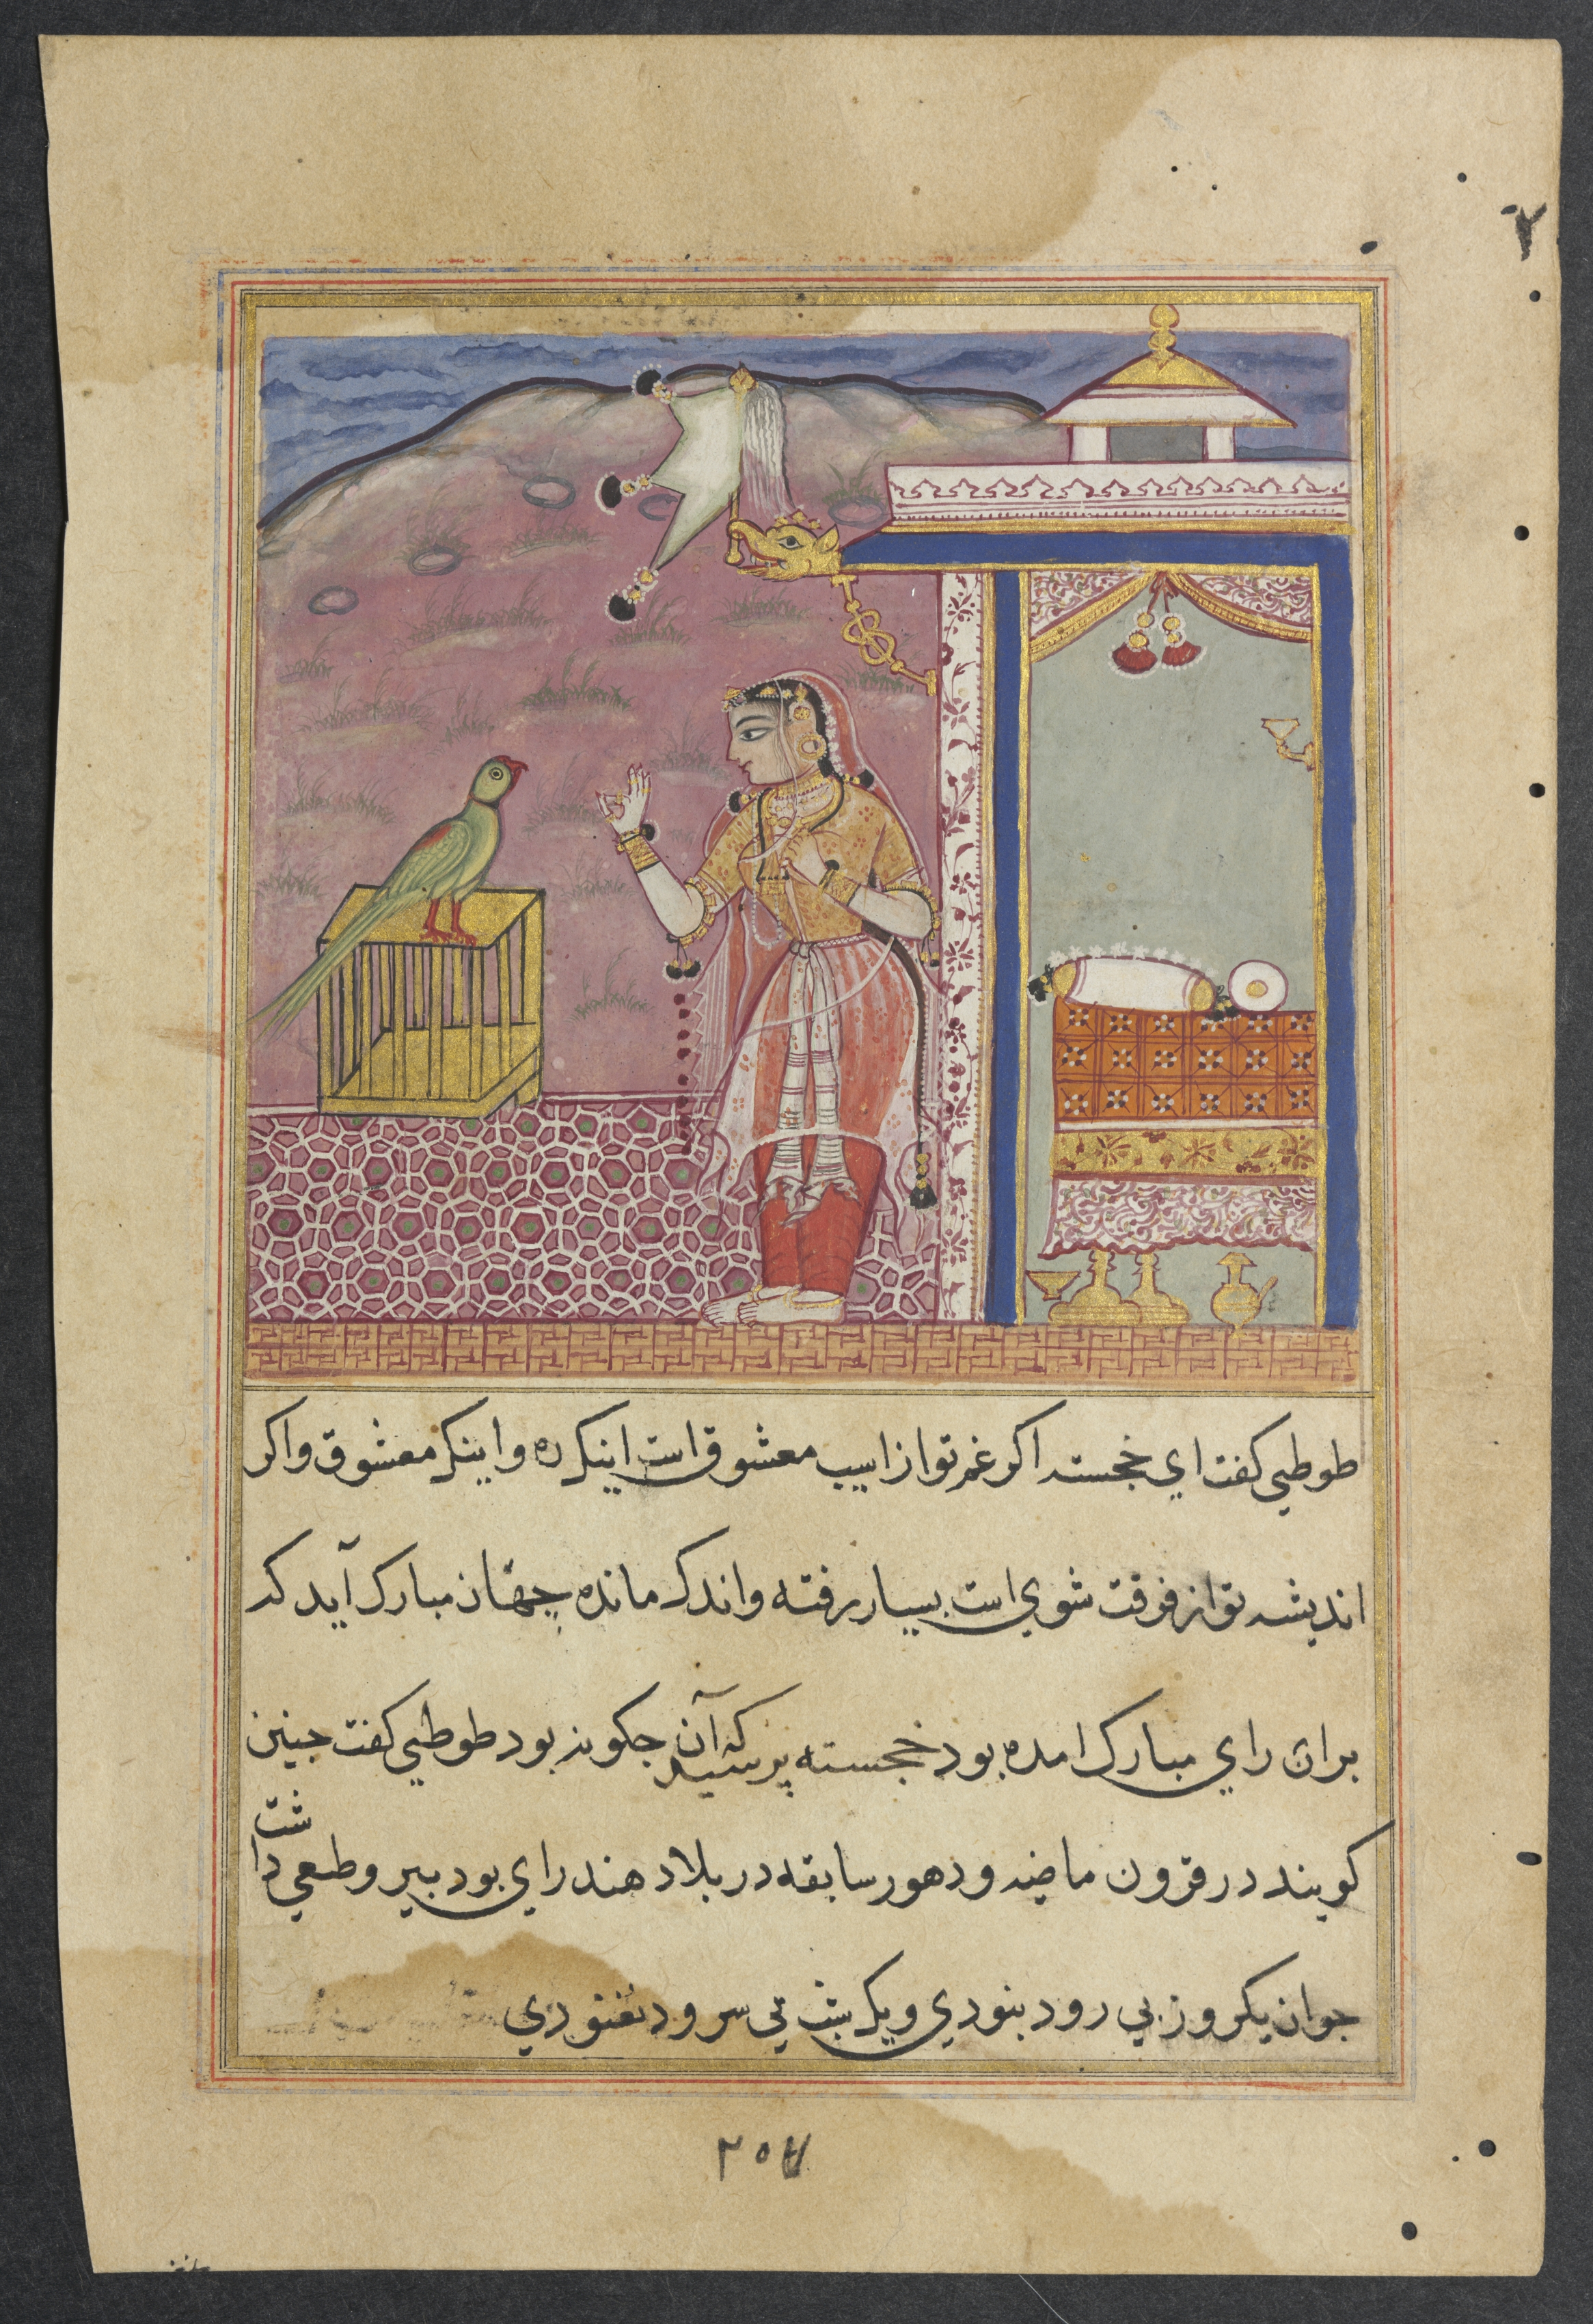 ۲
طوطي کفت اي خجسته اکر غم تو از اسيب معشوق است اينک ره و اينک معشوق و اکر
انديشه تو از فرقت شوي است بسيار رفته و اندک مانده جهان مبارک آيد که
بران راي مبارک امده بود خجسته پرسيد که آن جکونه بود طوطي کفت جنين
کويند در قرون ماضيه و دهور سابقه در بلاد هند راي بود پير و طبعي داشت
جوان يکروز بي رود بنودي و يک شب بي سرود نغنودي